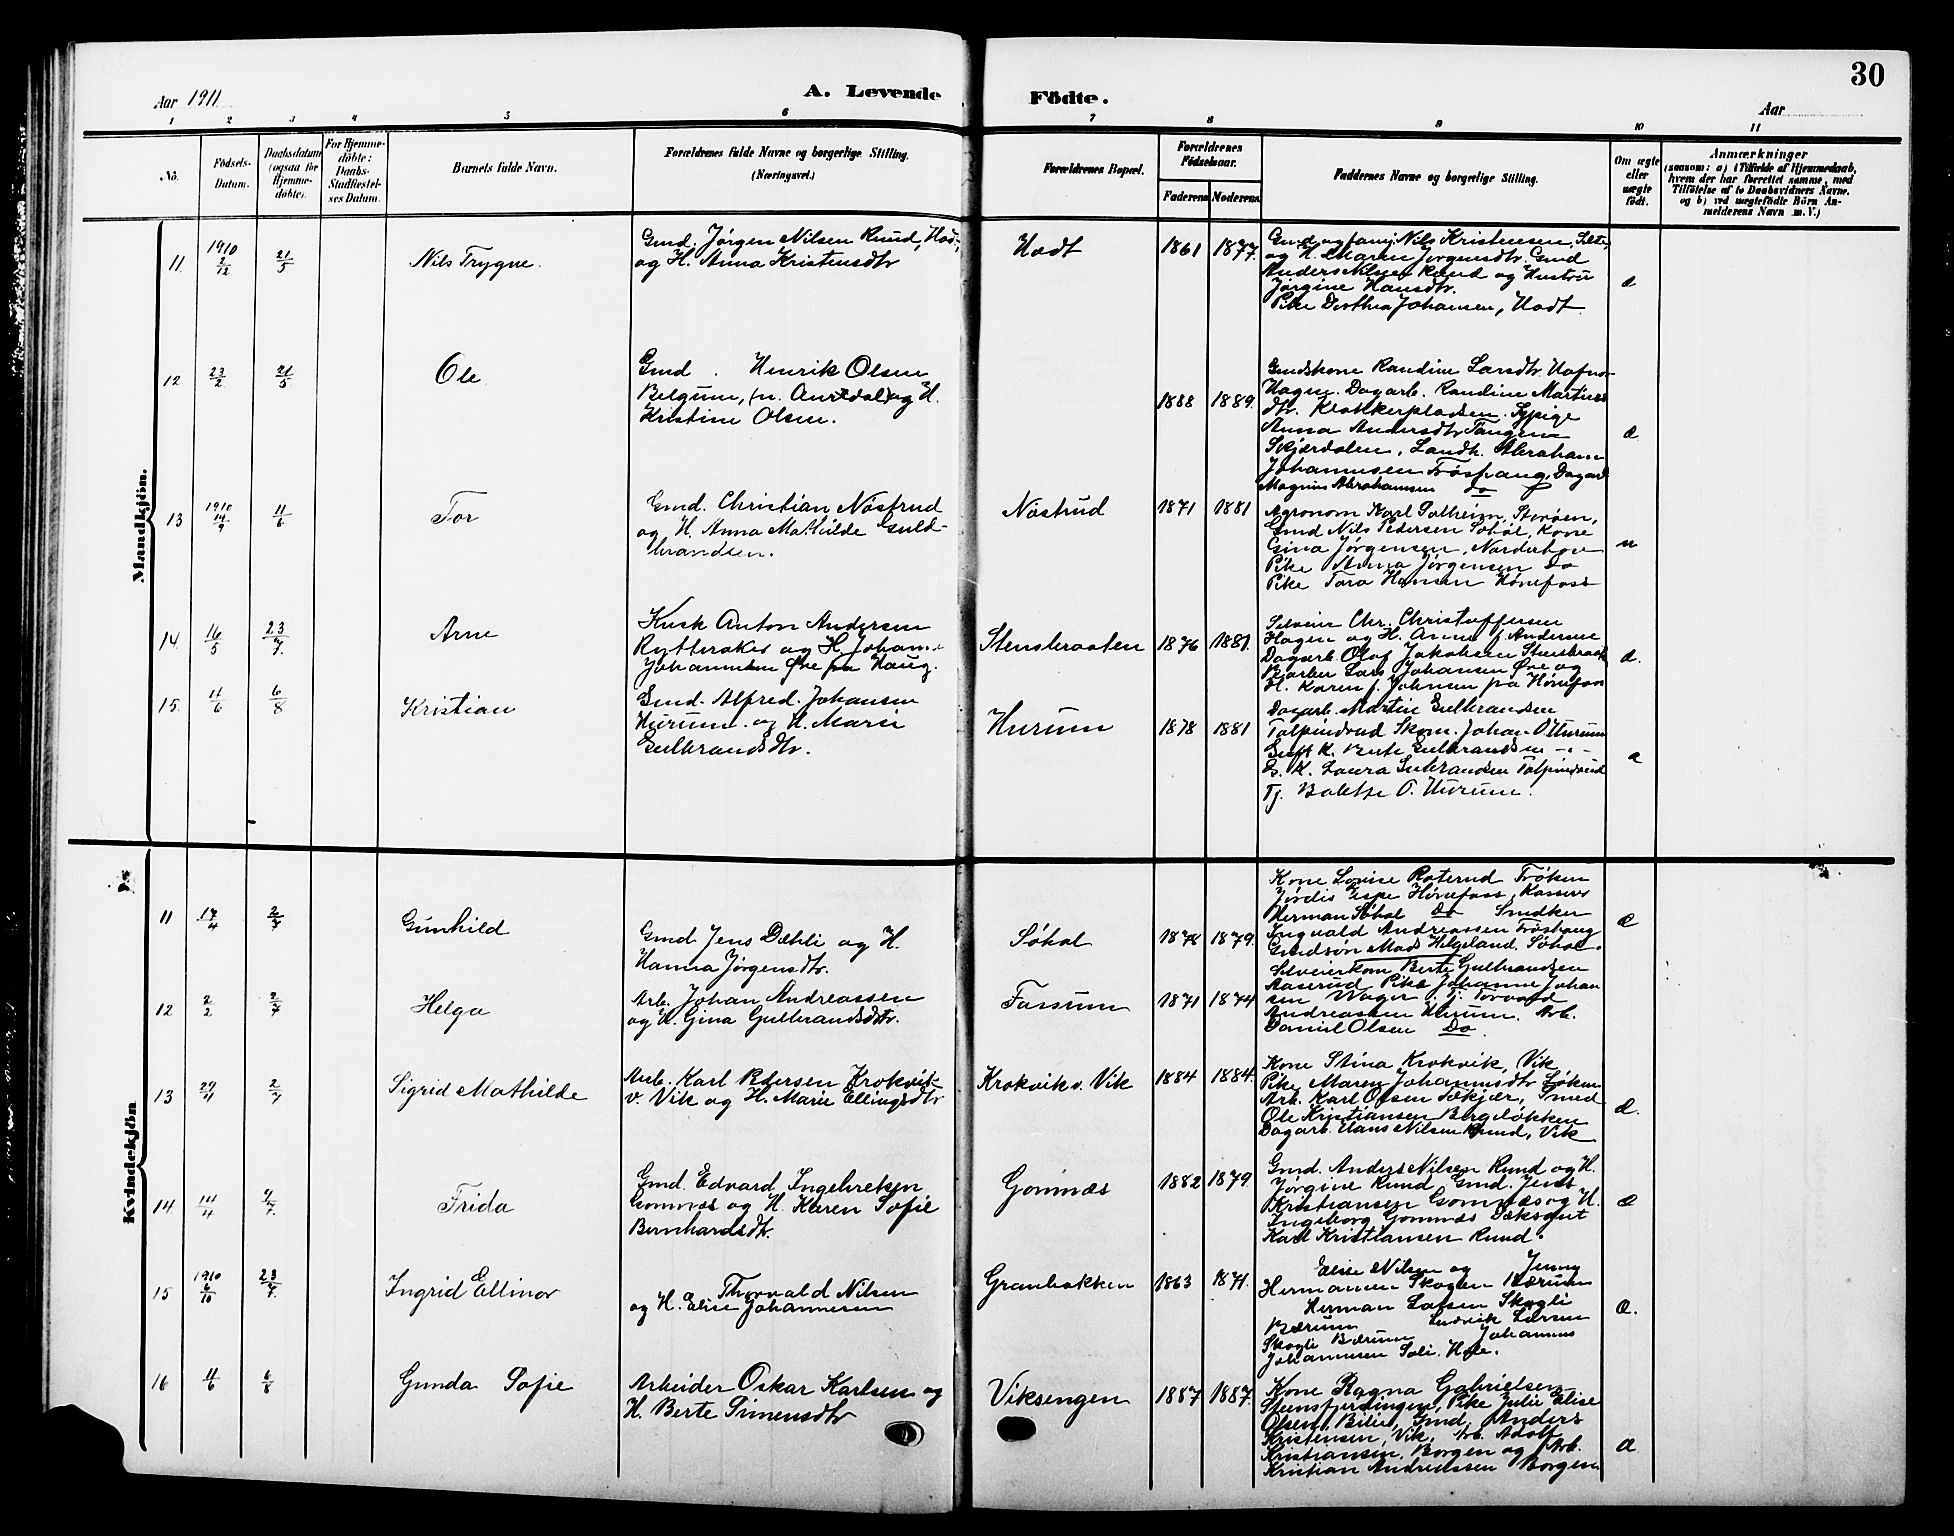 30
Aar 1911
A. Levende Födte.
Aar
1 2 3 4 5 6 7 8 9 10 11
No.
Födsels-Datum.
Daabsdatum (ogsaa for Hjemme-döbte).
For Hjemme-döbte: Daabs-Stadfæstel-ses Datum.
Barnets fulde Navn.
Forældrenes fulde Navne og borgerlige Stilling.
(Næringsvei.)
Forældrenes Bopæl.
Forældrenes Födselsaar.
Faderens Moderens
Faddernes Navne og borgerlige Stilling.
Om ægte eller uægte födt.
Anmærkninger
(saasom: a) i Tilfælde af Hjemmedaab,
hvem der har forrettet samme, med
Tilföielse af to Daabsvidners Navne,
og b) ved uægtefödte Börn An-
melderens Navn m. V.)
Mandkjön.
11 1910 2/12 21/5 Nils Trygve.
Gmd. Jørgen Nilsen Rund,
og H. Anna Kristensdtr
1861 1877.
Gmd og Kristensen,
og H. Maren Jørgensdtr. Gmd
Anders Nilsen Rund og Hustru
Jørgine Hansdtr.
Pike Dorthea Johansen,
12 23/2 21/5 Ole
Gmd. Henrik Olsen
og H.
Kristine Olsen.
1888 1889.
Gmdskone Randine Larsdtr
Dagarb. Randine
dtr. Klokkerpladsen. Sypige
Anna Andersdtr Tangen
Skjærdalen, Landh. Abraham
Johannesen Frøshaug, Dagarb
Magnus Abrahamsen do
13 1910 14/9 11/6 Tor
Gmd. Christian Nøstrud
og H. Anna Mathilde Guld-
brandsen.
Nøstrud 1871 1881
Agronom Karl Solheim, Storøen,
Gmd Nils Pedersen Søhol, Kone
Gina Jørgensen, Norderhov
Pike Anna Jørgensen Do
Pike Tora Hansen Hønefoss
14 16/5 23/7 Arne
Husk Anton Andersen
Rytteraker og H. Johanne
Johannesen Øre paa Haug
1876 1881.
Selveier Chr. Christoffersen
Hagen og H. Anne f. Andersen
Dagarb Olof Jakobsen
Lars Johansen Øre og
H. Karen f. Johnsen paa Hønefoss
15. 11/6 6/8 Kristian
Gmd. Alfred Johansen
Hurum og H. Marie
Gulbrandsdtr.
Hurum 1878 1881
Dagarb. Martin Gulbrandsen
Skom. Johan O. Hurum
Gift K. Berte Gulbrandsen -"-
G. K. Laura Gulbrandsen
Tj. O. Hurum.
Kvindekjön
11 17/4 2/7 Gunhild
Gmd. Jens Dæhli og H.
Hanna Jørgensdtr.
Søhol 1878 1879.
Kone Lovise Roterud Frøken
Jørdis Hønefoss, Kasserer
Herman Søhol Do Snedker
Ingvald Andreassen Frøshaug
Gmdsøn Mads Helgeland Søhol.
12 2/2 2/7 Helga
Arb. Johan Andreassen
og H. Gina Gulbrandsdtr.
Fossum 1871 1874
Selveierkone Berte Gulbrandsen
Aaserud Pike Johanne Johan
sen Wager. Tj. Torvald
Andreassen Hurum. Arb.
Daniel Olsen Do
13 29/4 2/7 Sigrid Mathilde
Arb. Karl Pedersen Krokvik
v. Vik og H. Marie Ellingsdtr
Krokvik v. Vik 1884 1884.
Kone Stina Krokvik, Vik
Pike Maren Johannesdtr Løken
Arb. Karl Olsen Smed
Ole Kristiansen Bergeløkken
Dagarb. Hans Nilsen Rund, Vik
14 14/4 9/7. Frida
Gmd. Edvard Ingebretsen
Gomnæs og H. Karen Sofie
Bernhardsdtr.
Gomnæs 1882 1879.
Gmd. Anders Nilsen Rund og H.
Jørgine Rund Gmd. Jens
Kristiansen Gomnæs og H.
Ingeborg Gomnæs
Karl Kristiansen Rund.
15 1910 6/10 23/7. Ingrid Ellinor
Thorvald Nilsen
og H. Elise Johannesen
Granbakken 1863 1871.
Elise Nilsen og Jenny
Hermansen Skoglie Bærum
Herman Larsen Skogli
Bærum Ludvik Larsen
Skogli Bærum Johannes
Johannesen Hole.
16 11/6 6/8 Gunda Sofie
Arbeider Oskar Karlsen og
H. Berte Simensdtr
Viksengen 1887 1887.
Kone Ragna Gabrielsen
Steensfjerdingen, Pike Julie Elise
Olsen, Bili, Gmd. Anders
Kristensen, Vik, Arb. Adolf
Kristiansen, Borgen og Arb.
Kristian Andreassen Borgen